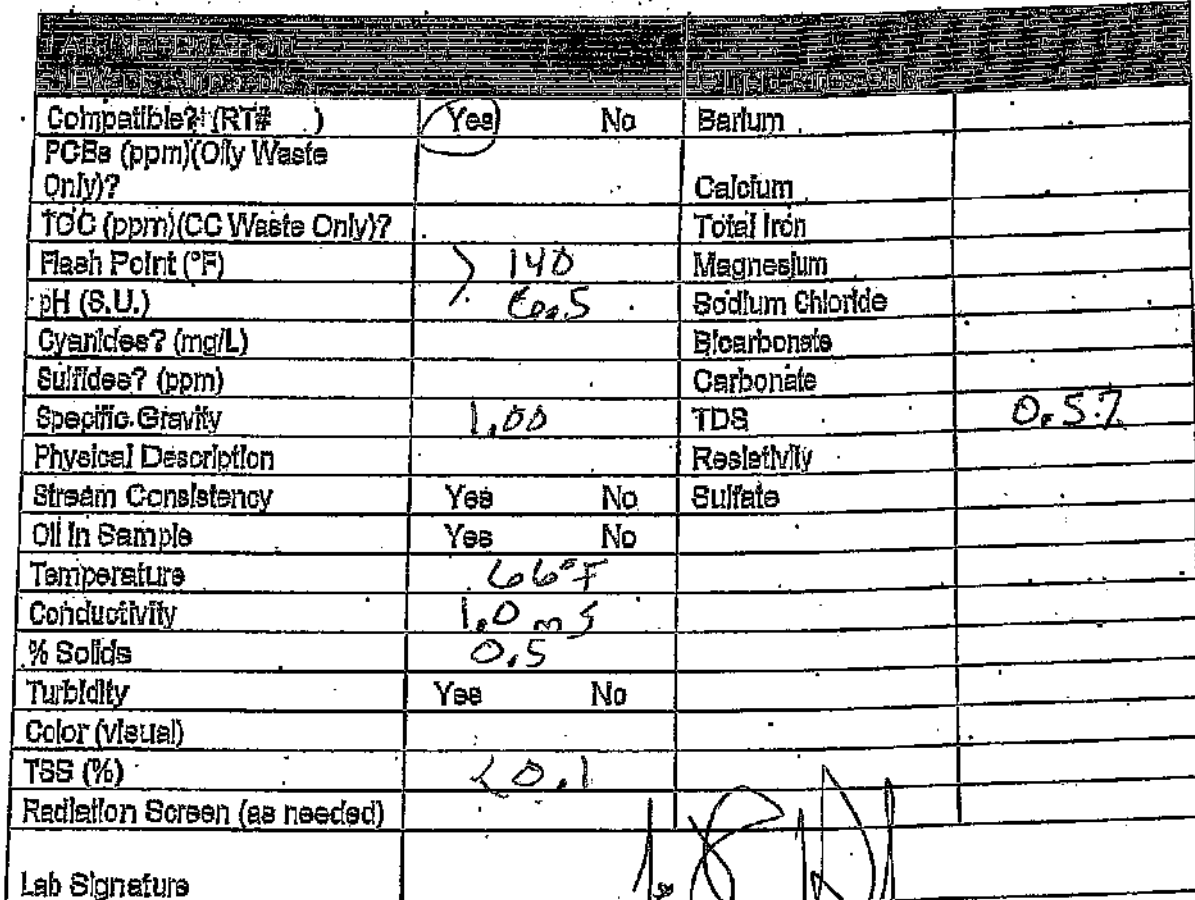 LAB INFORMATION
All Waste Shipments
Compatible? (RT# ) Yes No Barium
PCBs (ppm)(Oily Waste
Only)? Calcium
TOC (ppm)(CC Waste Only)? Total Iron
Flash Point (°F) > 140 Magnesium
pH (S.U.) 6.5 Sodium Chloride
Cyanides? (mg/L) Bicarbonate
Sulfides? (ppm) Carbonate
Specific Gravity 1.00 TDS 0.5%
Physical Description Resistivity
Stream Consistency Yes No Sulfate
Oil in Sample Yes No
Temperature 66°F
Conductivity 1.0 mS
% Solids 0.5
Turbidity Yes No
Color (visual)
TSS (%) <0.1
Radiation Screen (as needed)
Lab Signature